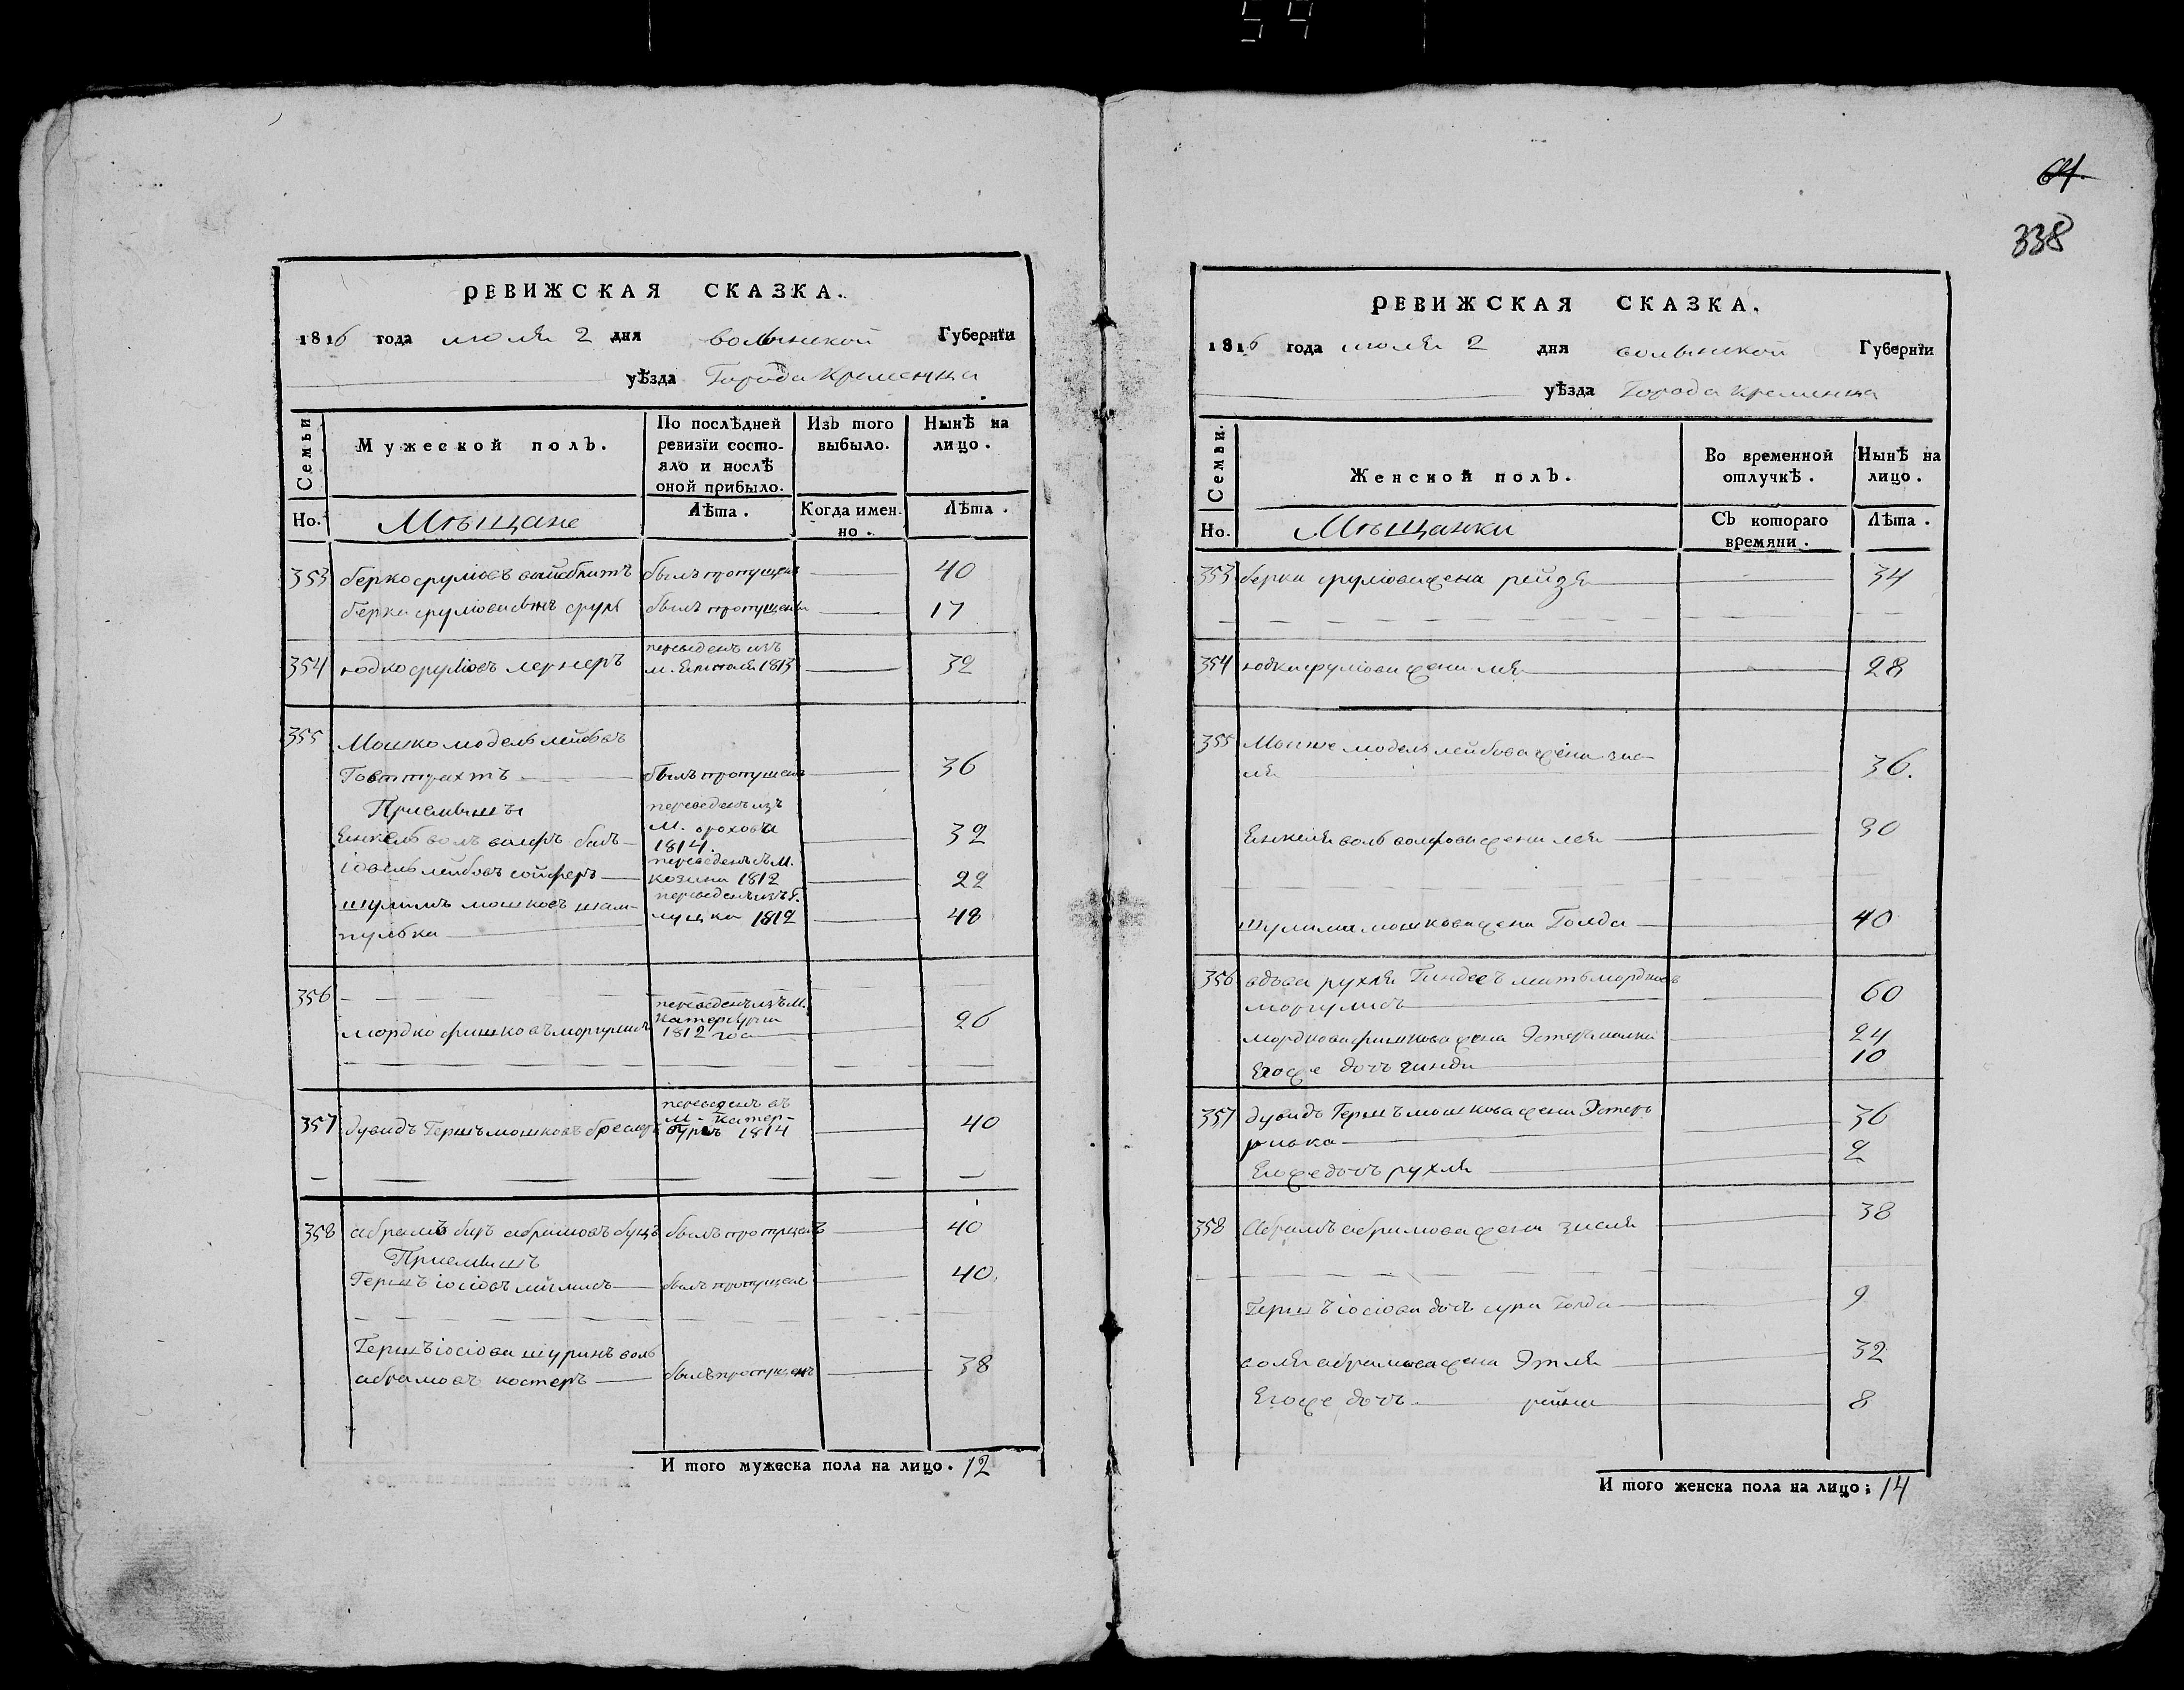 54
64.
338
РЕВИЖСКАЯ СКАЗКА.
1816 года июля 2 дня волынской Губернїи
уѣзда Города Кременца
Семьи
Мужеской полъ.
По послѣдней ревизїи состо-
яло и послѣ
оной прибыло.
Изъ того выбыло.
Нынѣ на лицо.
Но.
Мѣщане
Лѣта.
Когда имен-
но.
Лѣта.
353 берко срулювъ был пропущенъ 40
берка срулiова сынъ сруль был пропущенъ 17
354 юдко срулiовъ лернеръ переведенъ изъ
м. 1813 32
355 Мошко модель лейбовъ
был пропущенъ 36
Приемыши
переведенъ изъ
М. орховца
1814. 32
iовель лейбовъ сойферъ переведенъ съ М.
козина 1812 22
шулимъ мошковъ шам-
пулька переведенъ изъ
1812 48
356
мордко фишковъ моргулисъ переведенъ изъ М.
Катербурга
1812 года 26
357 дувидъ Гершъ мошковъ переведенъ въ
М. Катер-
бургъ 1814 40
358 абрамъ беръ абрамовъ буцъ былъ пропущенъ 40
Приемышъ
Гершъ iосiовъ былъ пропущенъ 40.
Гершъ iосiова шуринъ воль
абрамовъ костеръ былъ пропущенъ 38
И того мужеска пола на лицо. 12
РЕВИЖСКАЯ СКАЗКА.
1816 года июля 2 дня волынской Губернїи
уѣзда Города Кременца
Семьи.
Женской полъ.
Во временной
отлучкѣ.
Нынѣ на
лицо.
Но.
Мѣщанки
Съ котораго
времяни.
Лѣта.
353 берки срулiова жена рейзя 34
354 юдки срулiова жена лея 28
355 Мошко модель лейбова жена зис-
ля 36.
Янкеля воль волфова жена лея 30
шулима мошкова жена Голда 40
356 вдова рухля Гиндес мать мордкова
моргулисъ 60
мордкова фишкова жена Эстера малка 24
Его же дочь гинда 10
357 дувидъ Гершъ мошкова жена Эстеръ 36
ривка
Его же дочь рухля 2
358 Абрамъ абрамова жена зисля 38
Гершъ iосiова дочь сура Голда 9
воля абрамова жена Этля 32
Его же дочь рейза 8
И того женска пола на лицо: 14